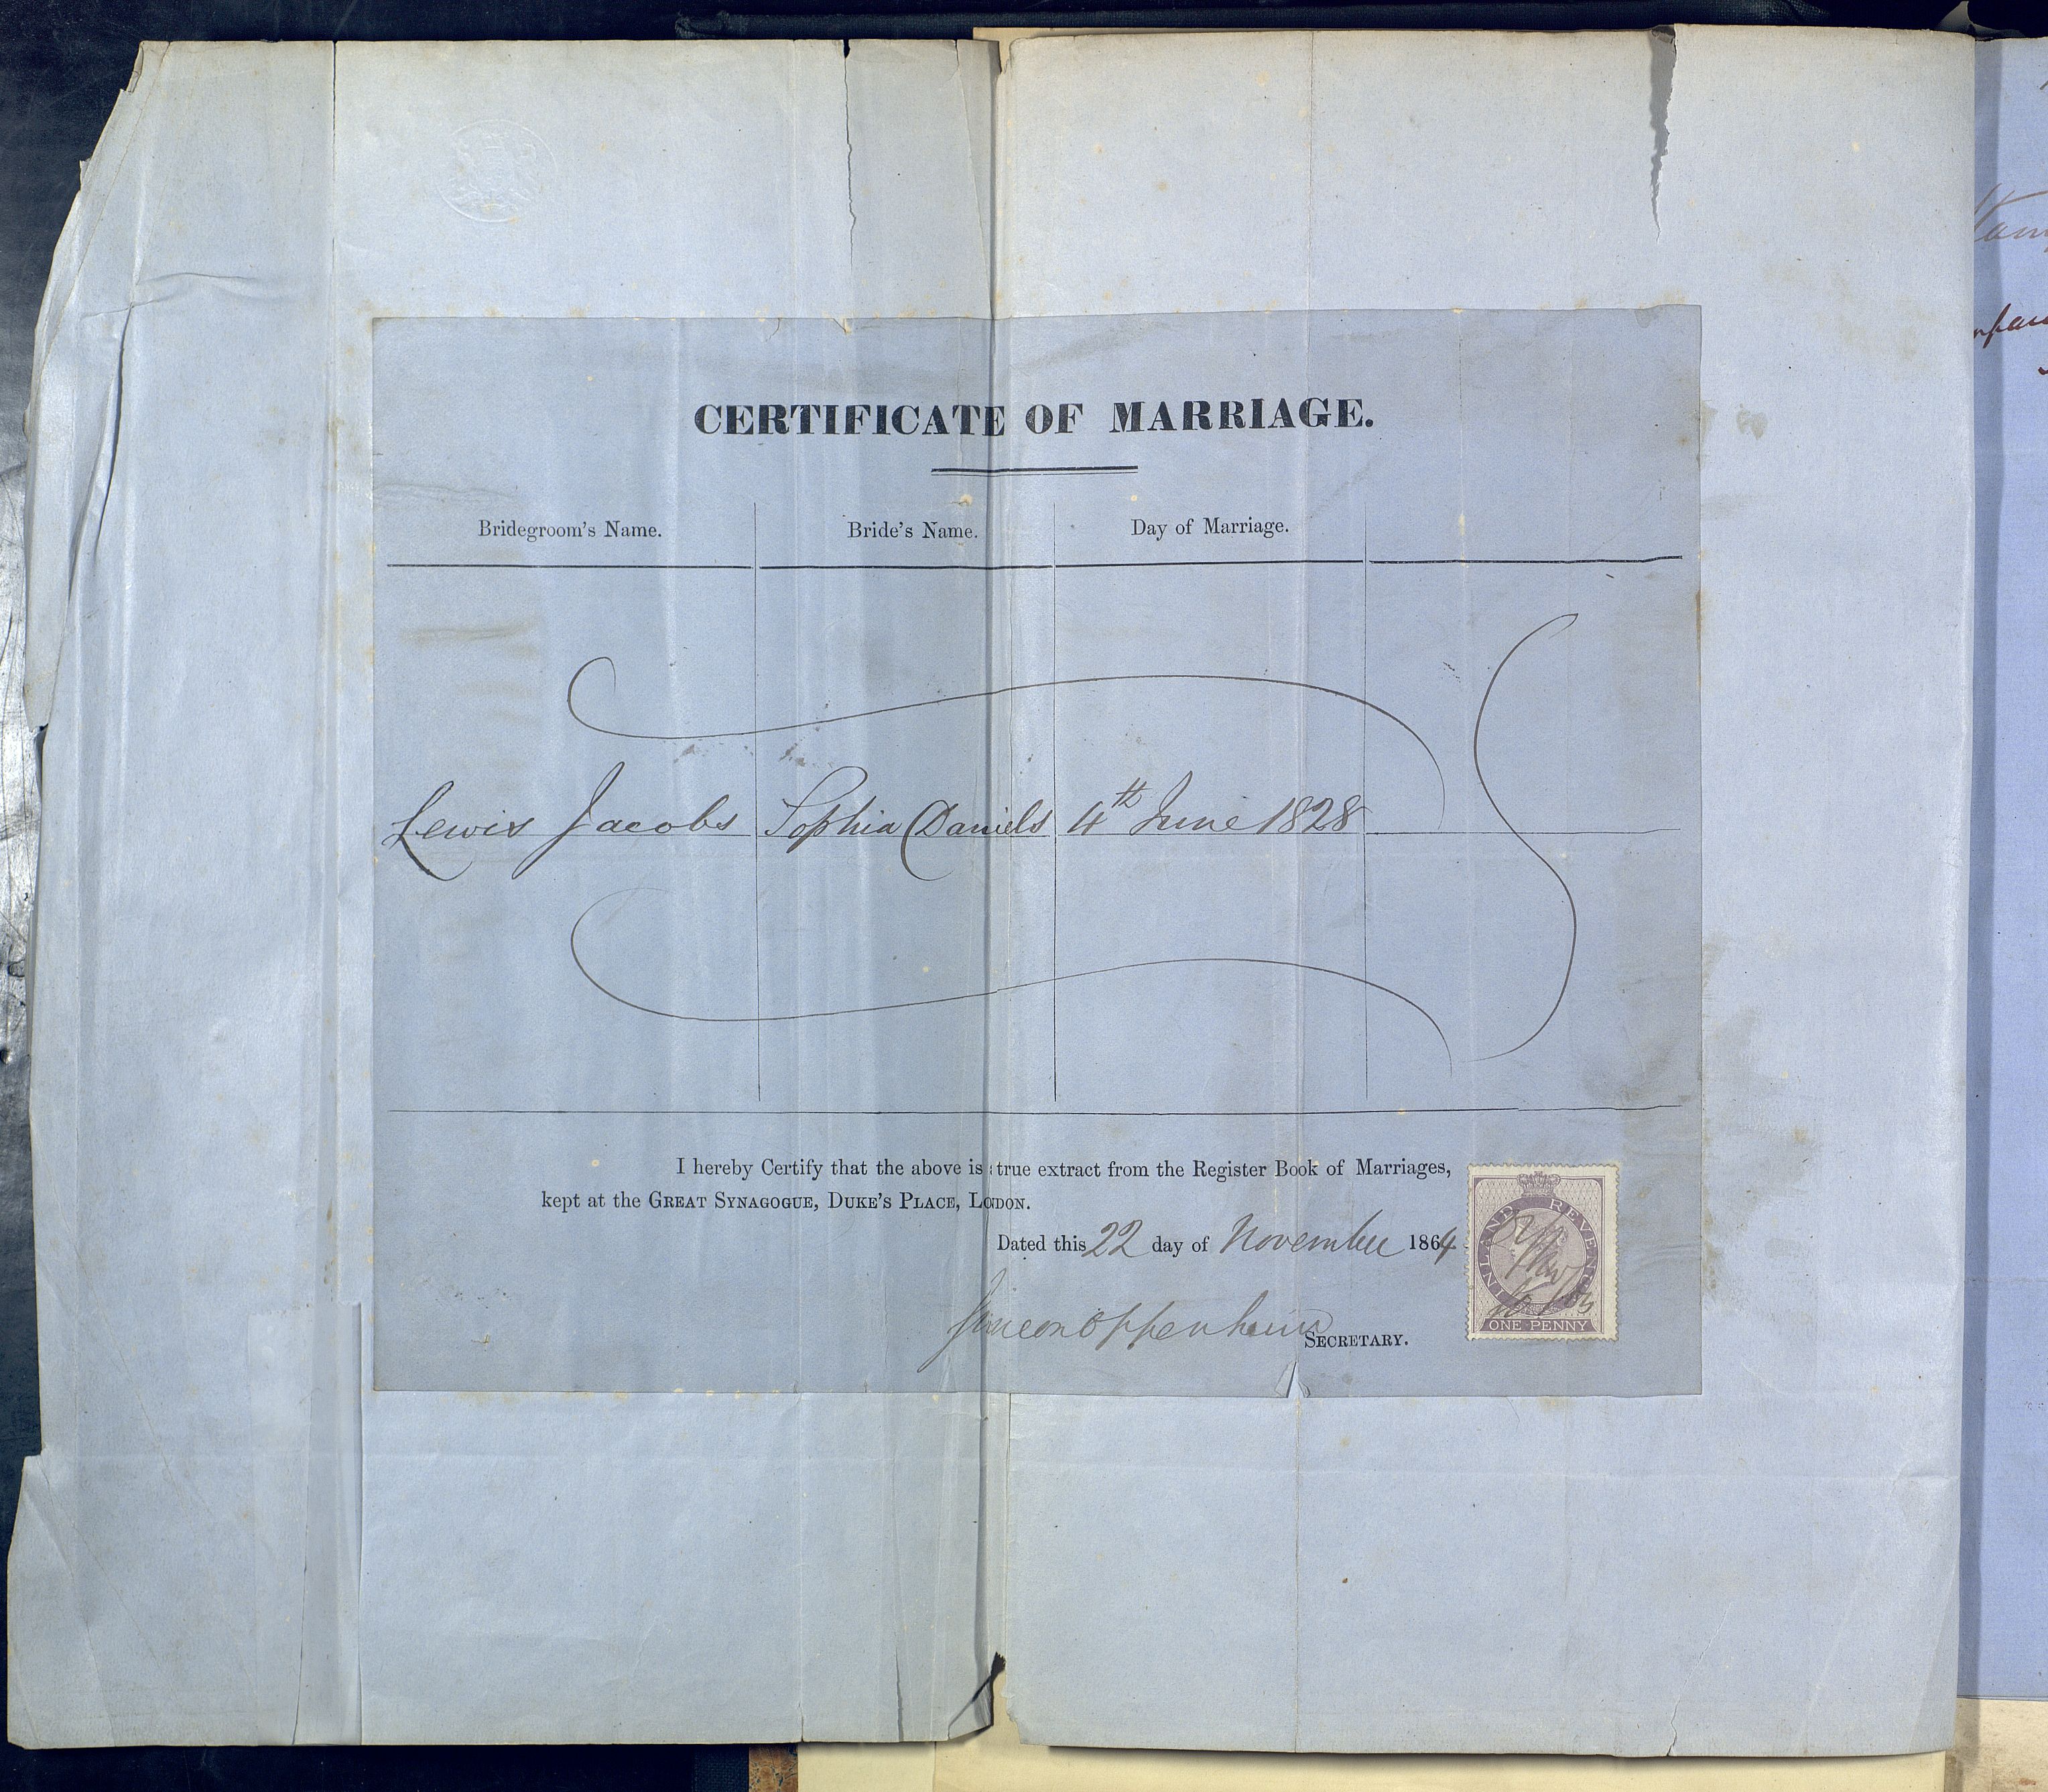 CERTIFICATE OF MARRIAGE.
Bridegroom's Name. Bride's Name. Day of Marriage.
Lewis Jacobs Sophia Daniels 4th June 1828
I hereby Certify that the above is true extract from the Register Book of Marriages,
kept at the GREAT SYNAGOGUE, DUKE'S PLACE, LODON.
Dated this 22 day of November 1864
Simeon Oppenheim
SECRETARY.
INLAND REVENUE
ONE PENNY